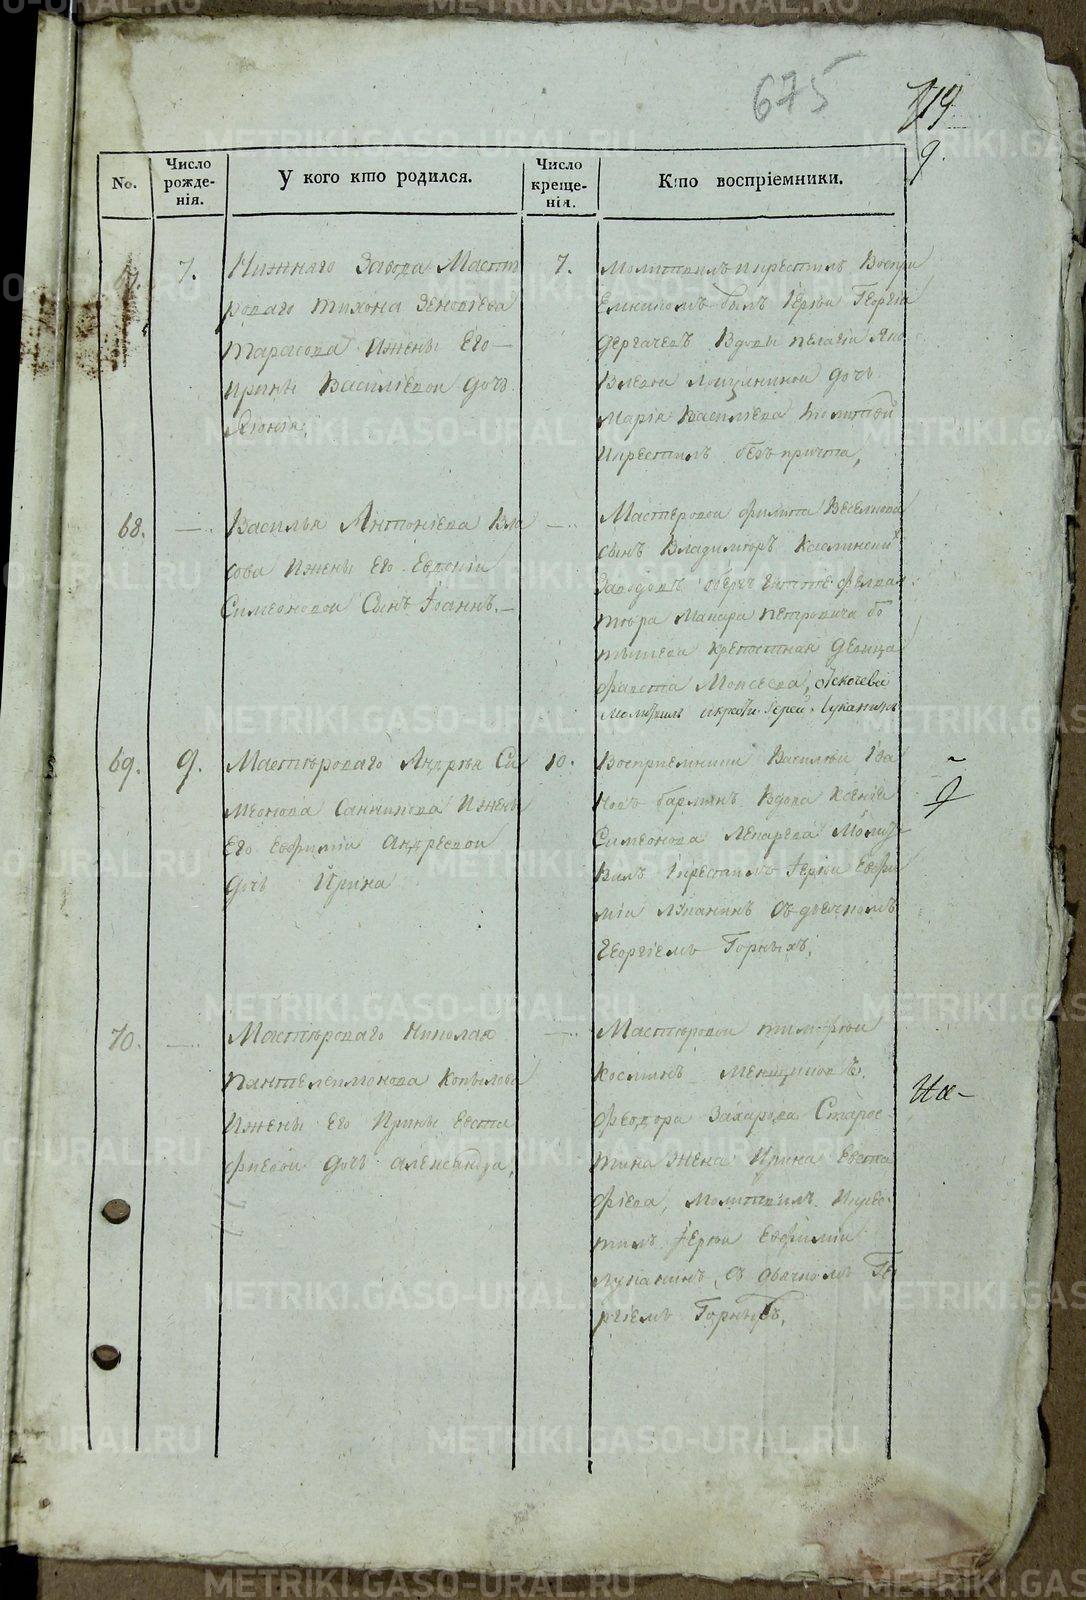 675
719
9.
No.
Число рожде-нія.
У кого кто родился.
Число креще-нія.
Кто воспріемники.
67. 7.
Нижняго Завода Масте
роваго Тихона Зеновіева
Тарасова Ижены Его
Ирины Василіевои дочь
7.
Молитвилъ икрестилъ Воспри
Емникомъ былъ Іерѣи Георгіи
Дергачевъ Вдовы пелагіи Яко
Влевои дочь
Марія Василіева
Икрестилъ безъ причта,
68.
Василья Антоніева Вла
сова Ижены Его Евгеніи
Симеоновои Сынъ Іоаннъ.
Мастеровои филипа
сынъ Владимиръ Каслинскихъ
Заводовъ
Макара петровича бо
тышева крепостная девица
Моисеева,
молитвилъ икрести Іереи Луканинъ
69. 9.
Мастѣроваго Андрѣя Си
меонова Санникова Ижены
Его Евфиміи Андреевои
дочь Ирина
10.
Воспріемники Василіи Ива
новъ Вдова Ксенія
Симеонова Молит
вилъ Икрестилъ Іерѣи Евфи
міи Луканинъ Съ дьячкомъ
Георгіемъ Горныхъ,
70.
Мастѣроваго Николая
пантелеимонова Копылова
Ижены Его Ирины Евста
фиевои дочь александра,
Мастѣровои тимофѣи
Косминъ Меншиковъ,
феодора Захарова Старос
тина жена Ирина Евста
фіева, молитвилъ Икрес
тилъ Іерѣи Евфиміи
Луканинъ, Съ дьячкомъ Гео
ргіемъ Горныхъ,
METRIKI.GASO-URAL.RU